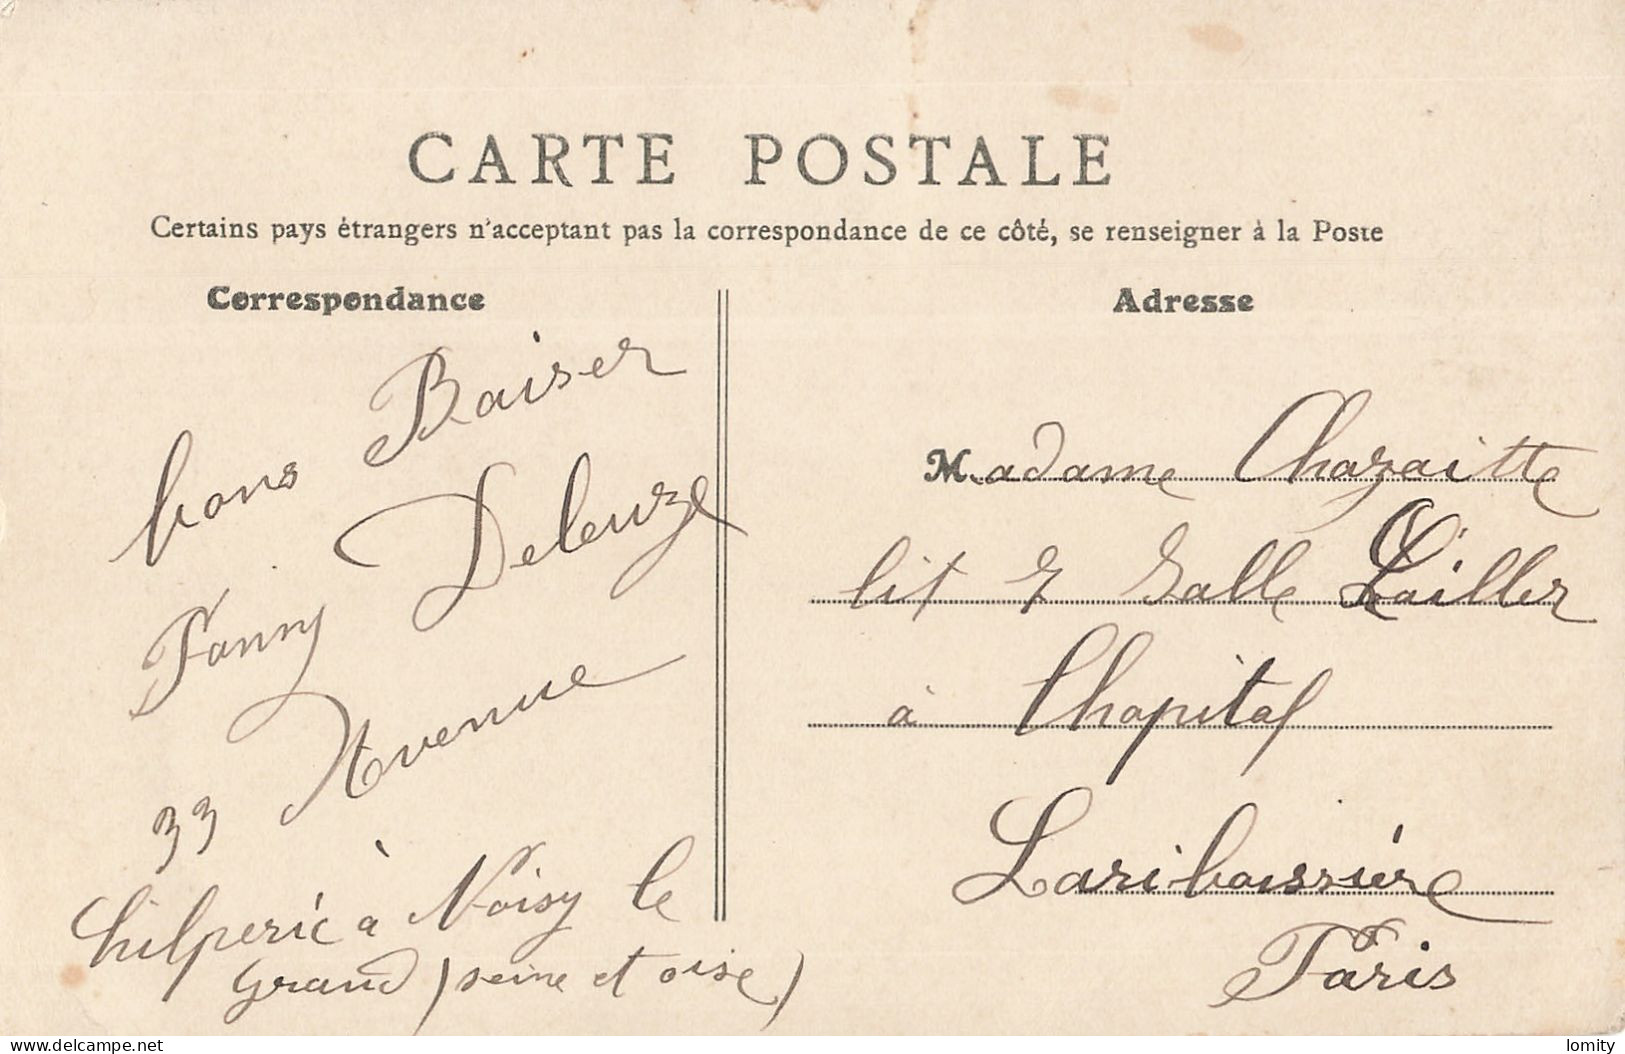 CARTE POSTALE
Certains pays étrangers n'acceptent pas la correspondance de ce côté, se renseigner à la Poste
Correspondance
bons Baiser
Fanny Deleuze
33 Avenue
Chilperic à Noisy le
Grand (seine et oise)
Adresse
Madame Chazaitte
lit 7 Salle Lailler
à lhopital
Lariboissière
Paris
www.delcampe.net
lomity